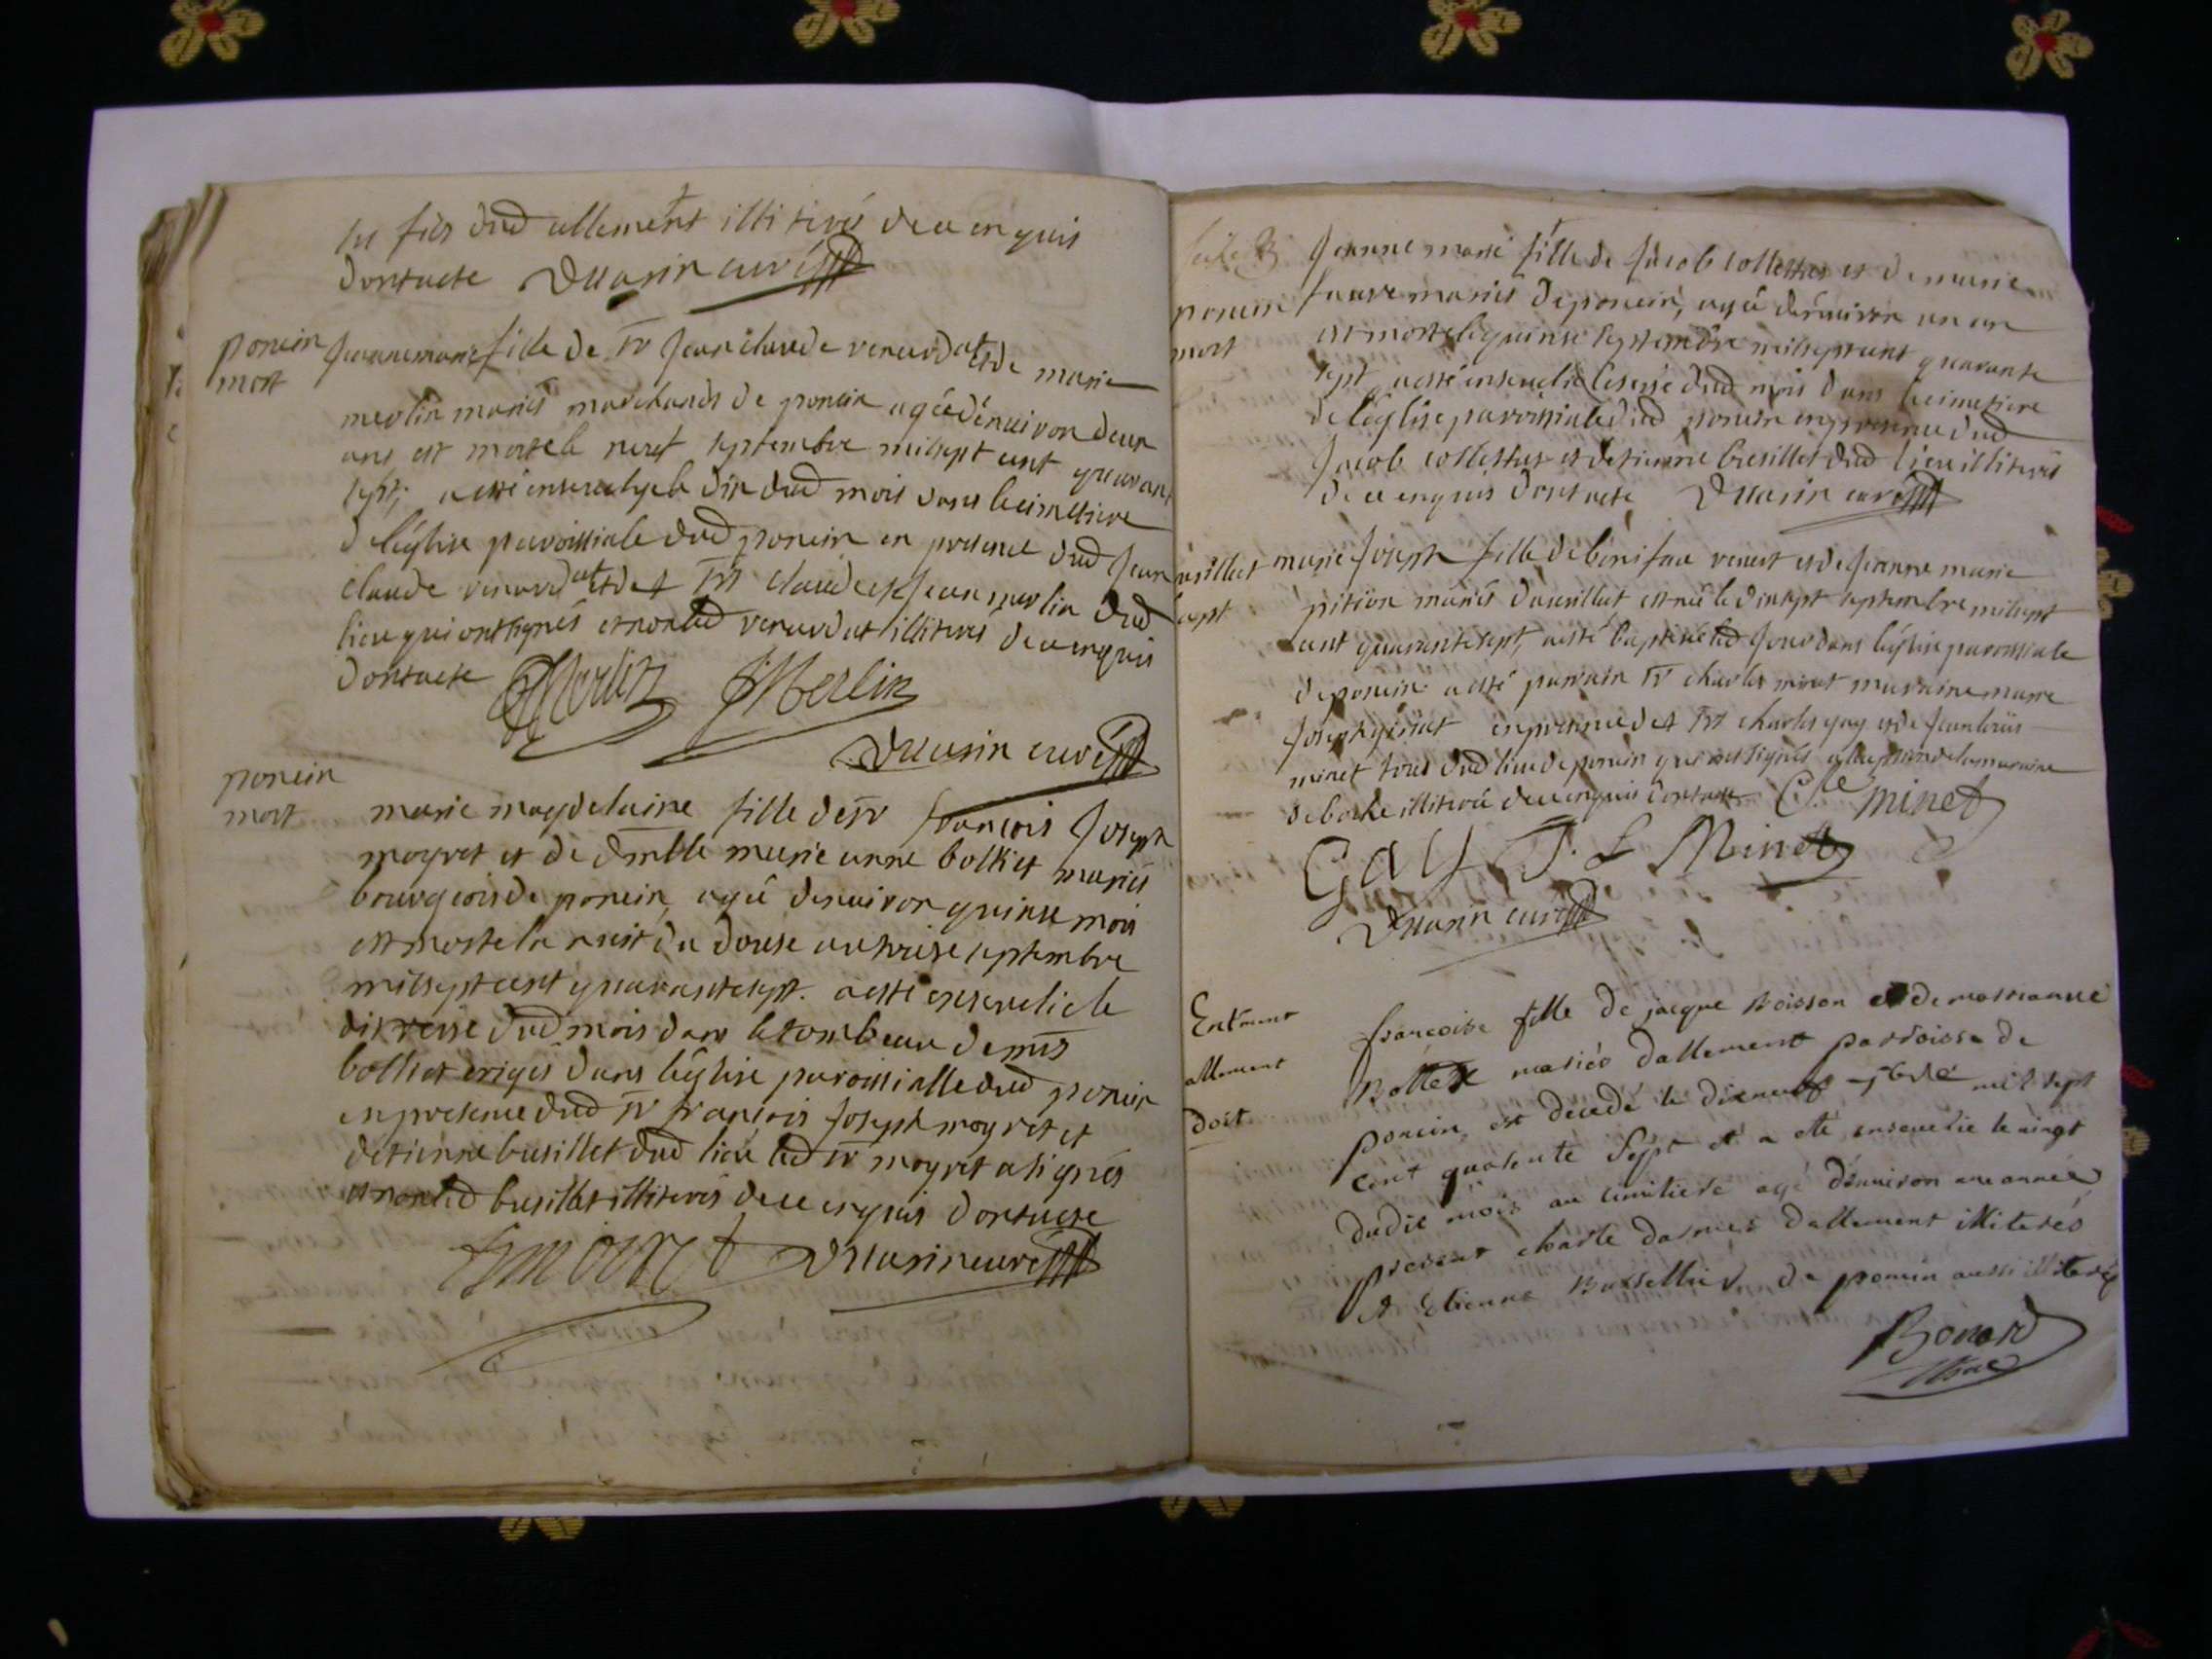 fils dud allement illiterés de ce enquis
dont acte curé
poncin
mort
Jeanne marie fille de sr Jean claude renard et de marie
merlin mariés marchands de poncin agée dénuiron deux
ans est morte le neuf septembre mil sept cent quarante
sept, a esté enseuelye le dix dud mois dans le cimetiere
de léglise paroissiale dud poncin en presence dud Jean
claude et de srs claude et Jean merlin dud
lieu qui ont signés et non led illiterés de ce enquis
dont acte Merlin J Merlin
curé
poncin
mort
marie magdelaine fille de sr françois Joseph
moyret et de dmlle marie anne bolliet mariés
bourgeois de poncin, agée denuiron quinse mois
est morte la nuit du douse au treise septembre
mil sept cent quarante sept. a esté enseuelie le
dud mois dans le tombeau de mrs
bolliet erigés dans léglise paroissialle dud poncin
en presence dud sr françois Joseph moyret et
detienne busillet dud lieu led sr moyret a signés
et non led busillet illiterés de ce enquis dont acte
moiret curé
poncin
mort
Jeanne marie fille de Jacob et de marie
mariés de poncin, agée dénuiron un an
est morte le quinse septembre mil sept cent quarante
sept a esté enseuelie le seise dud mois dans le cimetiere
de léglise paroissiale dud poncin en presence dud
Jacob et detienne busillet dud lieu illiterés
de ce enquis dont acte curé
marie Joseph fille de boniface et de Jeanne marie
pition mariés est née le dix sept septembre mil sept
cent quarante sept, a esté baptisée led Jour dans léglise paroissiale
de poncin a esté parrain sr charles minet marraine marie
Joseph en presence de srs charles gay et de Jean louis
minet tous dud lieu de poncin qui ont signés a lexception de la maraine
illiterée de ce enquis dont acte Cle minet
Gay J. L Minet
curé
Entment
allement
doit
francoise fille de jacque Boisson et de marianne
Bottex mariés dallement parroisse de
poncin, est decedé le dixneuf 7bre mil sept
cent quarente sept et a eté enseuelie le vingt
dudit mois au cimitiere agé dénuiron une année
present charle dallement illiterés
et Etienne de poncin aussi illiterés
Bonard